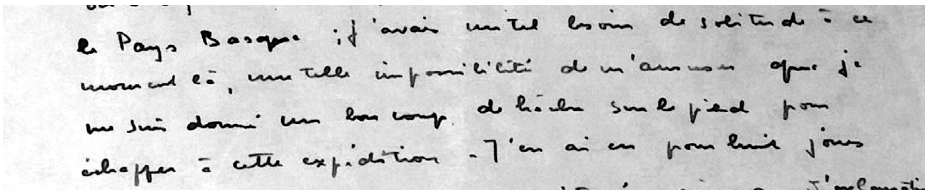 le Pays Basque ; j'avais un tel besoin de solitude à ce
moment là, une telle impossibilité de m'amuser que je
me suis donné un bon coup de hâche sur le pied pour
échapper à cette expédition - J'en ai eu pour huit jours